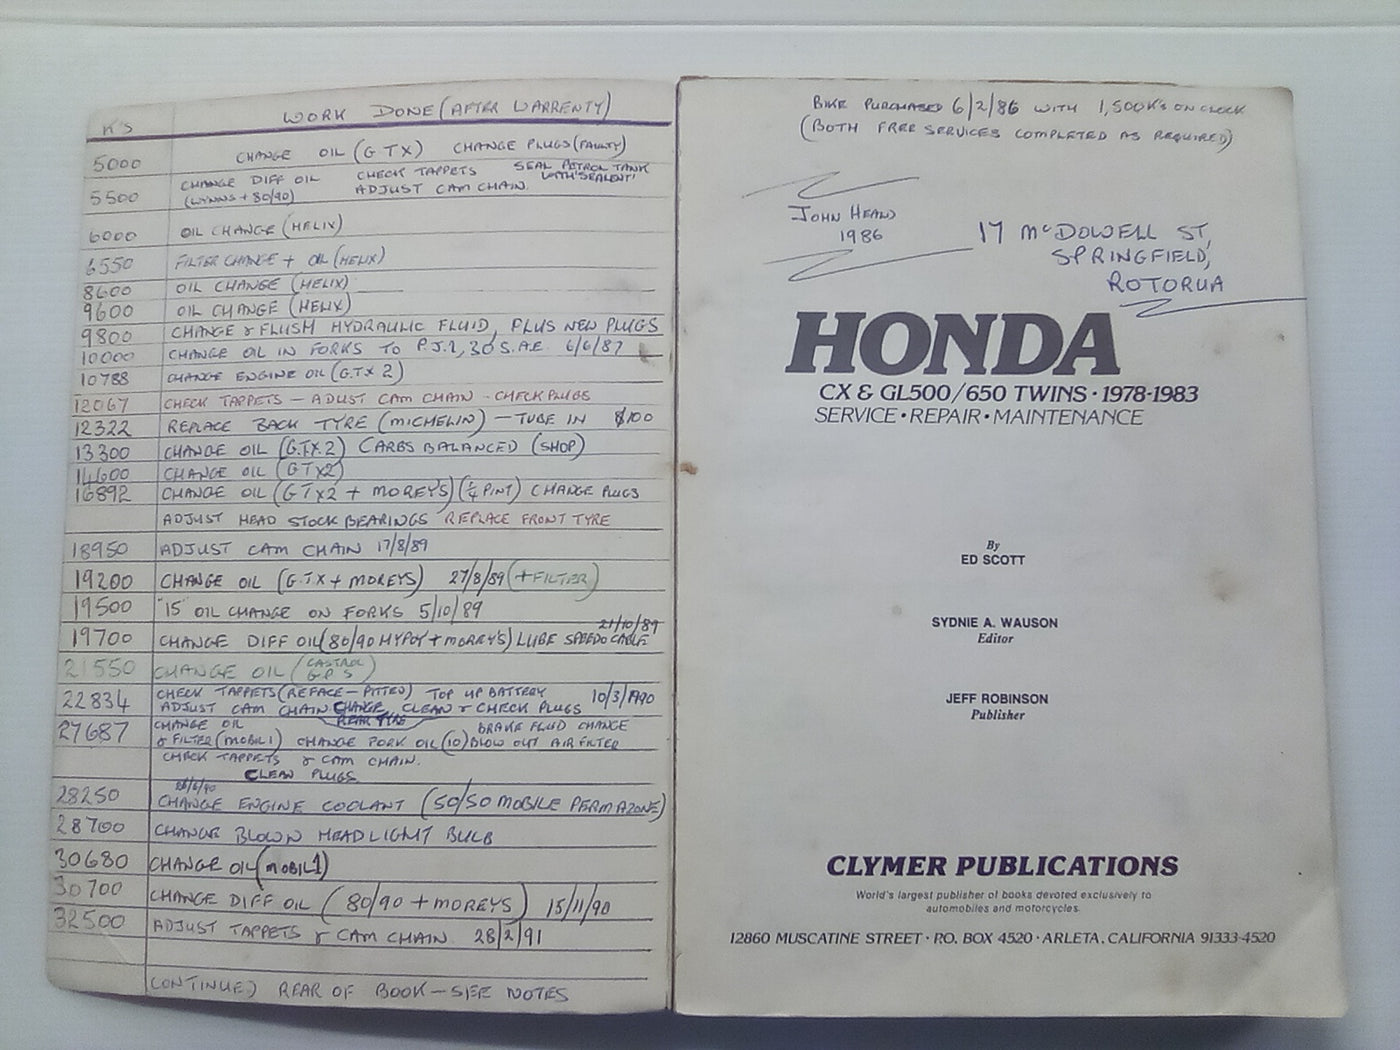 K'S WORK DONE (AFTER WARRENTY)
5000 CHANGE OIL (GTX) CHANGE PLUGS (FAULTY)
5500 CHANGE DIFF OIL CHECK TAPPETS SEAL PETROL TANK
(WYNNS + 80/90) ADJUST CAM CHAIN. WITH 'SEALENT'
6000 OIL CHANGE (HELIX)
6550 FILTER CHANGE + OIL (HELIX)
8600 OIL CHANGE (HELIX)
9600 OIL CHANGE (HELIX)
9800 CHANGE & FLUSH HYDRAULIC FLUID, PLUS NEW PLUGS
10000 CHANGE OIL IN FORKS TO P.J.1, 30 S.A.E. 6/6/87
10788 CHANGE ENGINE OIL (GTX 2)
12067 CHECK TAPPETS - ADUST CAM CHAIN - CHECK PLUGS
12322 REPLACE BACK TYRE (MICHELIN) - TUBE IN $100
13300 CHANGE OIL (G.TX.2) CARBS BALANCED (SHOP)
14600 CHANGE OIL (GTX2)
16892 CHANGE OIL (GTX2 + MOREYS) (1/4 PINT) CHANGE PLUGS
ADJUST HEAD STOCK BEARINGS REPLACE FRONT TYRE
18950 ADJUST CAM CHAIN 17/8/89
19200 CHANGE OIL (G.TX + MOREYS) 27/8/89 (+ FILTER)
19500 '15' OIL CHANGE ON FORKS 5/10/89
21/10/89
19700 CHANGE DIFF OIL (80/90 HYPOY + MOREYS) LUBE SPEEDO CABLE
21550 CHANGE OIL (CASTROL GPS)
22834 CHECK TAPPETS (REFACE - PITTED) TOP UP BATTERY 10/3/1990
ADJUST CAM CHAIN CHANGE CLEAN & CHECK PLUGS
REAR TYRE
27687 CHANGE OIL BRAKE FLUID CHANGE
& FILTER (MOBIL 1) CHANGE FORK OIL (10) BLOW OUT AIR FILTER
CHECK TAPPETS & CAM CHAIN.
CLEAN PLUGS
28250 CHANGE ENGINE COOLANT (50/50 MOBILE PERMAZONE)
28700 CHANGE BLOWN HEADLIGHT BULB
30680 CHANGE OIL (MOBIL 1)
30700 CHANGE DIFF OIL (80/90 + MOREYS) 15/11/90
32500 ADJUST TAPPETS & CAM CHAIN. 28/2/91
CONTINUED REAR OF BOOK - SEE NOTES
BIKE PURCHASED 6/2/86 WITH 1,500K's ON CLOCK
(BOTH FREE SERVICES COMPLETED AS REQUIRED)
JOHN HEAND
1986
17 McDOWELL ST,
SPRINGFIELD,
ROTORUA
HONDA
CX & GL500/650 TWINS • 1978-1983
SERVICE • REPAIR • MAINTENANCE
By
ED SCOTT
SYDNIE A. WAUSON
Editor
JEFF ROBINSON
Publisher
CLYMER PUBLICATIONS
World's largest publisher of books devoted exclusively to
automobiles and motorcycles.
12860 MUSCATINE STREET • P.O. BOX 4520 • ARLETA, CALIFORNIA 91333-4520